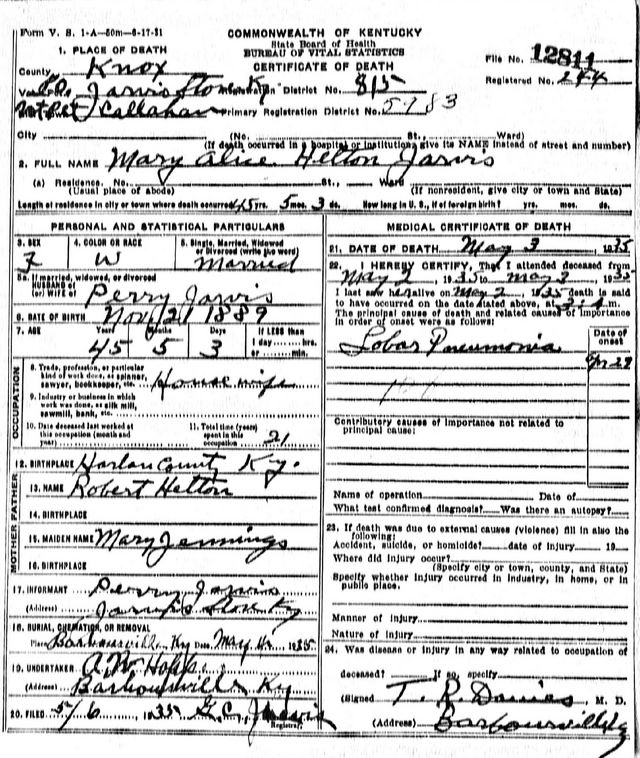 Form V. S. 1-A—50m—6-17-31
COMMONWEALTH OF KENTUCKY
State Board of Health
BUREAU OF VITAL STATISTICS
CERTIFICATE OF DEATH
File No. 12811
Registered No. 244
1. PLACE OF DEATH
County Knox
Jarvis Store Ky Registration District No. 815
Callahan Primary Registration District No. 5783
City (No. St., Ward)
(If death occurred in a hospital or institution, give its NAME instead of street and number)
2. FULL NAME Mary Alice Helton Jarvis
(a) Residence. No. St., Ward
(Usual place of abode) (If nonresident, give city or town and State)
Length of residence in city or town where death occurred 45 yrs. 5 mos. 3 ds. How long in U. S., if of foreign birth? yrs. mos. ds.
PERSONAL AND STATISTICAL PARTICULARS
3. SEX F
4. COLOR OR RACE W
5. Single, Married, Widowed or Divorced (write the word) Married
5a. If married, widowed, or divorced
HUSBAND of
(or) WIFE of Perry Jarvis
6. DATE OF BIRTH Nov 21 1889
7. AGE Years Months Days If LESS than
45 5 3 1 day hrs.
or min.
OCCUPATION
8. Trade, profession, or particular
kind of work done, as spinner,
sawyer, bookkeeper, etc. House wife
9. Industry or business in which
work was done, as silk mill,
sawmill, bank, etc.
10. Date deceased last worked at
this occupation (month and
year)
11. Total time (years)
spent in this
occupation 21
12. BIRTHPLACE Harlan County Ky.
MOTHER FATHER
13. NAME Robert Helton
14. BIRTHPLACE
15. MAIDEN NAME Mary Jennings
16. BIRTHPLACE
17. INFORMANT Perry Jarvis
(Address) Jarvis Store Ky
18. BURIAL, CREMATION, OR REMOVAL
Place Barbourville Ky Date May 4, 1935
19. UNDERTAKER A. W. Hopp
(Address) Barbourville Ky
20. FILED 5/6 1935 Registrar.
MEDICAL CERTIFICATE OF DEATH
21. DATE OF DEATH May 3, 1935
22. I HEREBY CERTIFY, That I attended deceased from
May 2, 1935 to May 3, 1935
I last saw h alive on May 2, 1935 death is said
to have occurred on the date stated above, at m.
The principal cause of death and related causes of importance
in order of onset were as follows:
Date of onset
Lobar Pneumonia Apr 29
Contributory causes of importance not related to
principal cause:
Name of operation Date of
What test confirmed diagnosis? Was there an autopsy?
23. If death was due to external causes (violence) fill in also the
following:
Accident, suicide, or homicide? date of injury 19
Where did injury occur?
(Specify city or town, county, and State)
Specify whether injury occurred in industry, in home, or in
public place.
Manner of injury
Nature of injury
24. Was disease or injury in any way related to occupation of
deceased? If so, specify
(Signed T. R. Davies, M. D.
(Address) Barbourville Ky